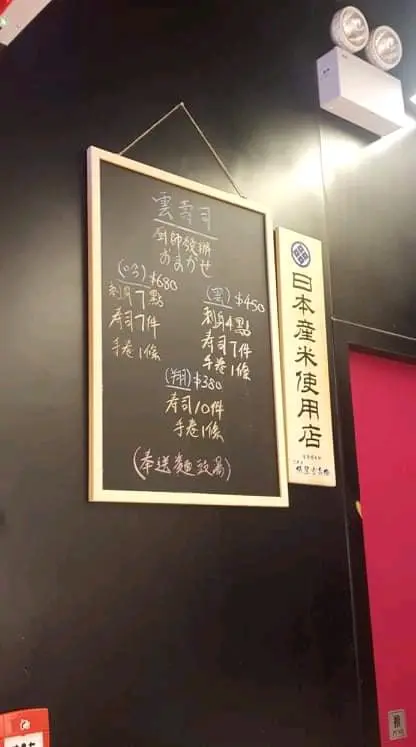 雲壽司
廚師發辦
おまかせ
$680
刺身7點
寿司7件
手卷1條
(雲) $450
刺身4點
寿司7件
手卷1條
(翔) $380
寿司10件
手卷1條
(奉送麵豉湯)
日本産米使用店